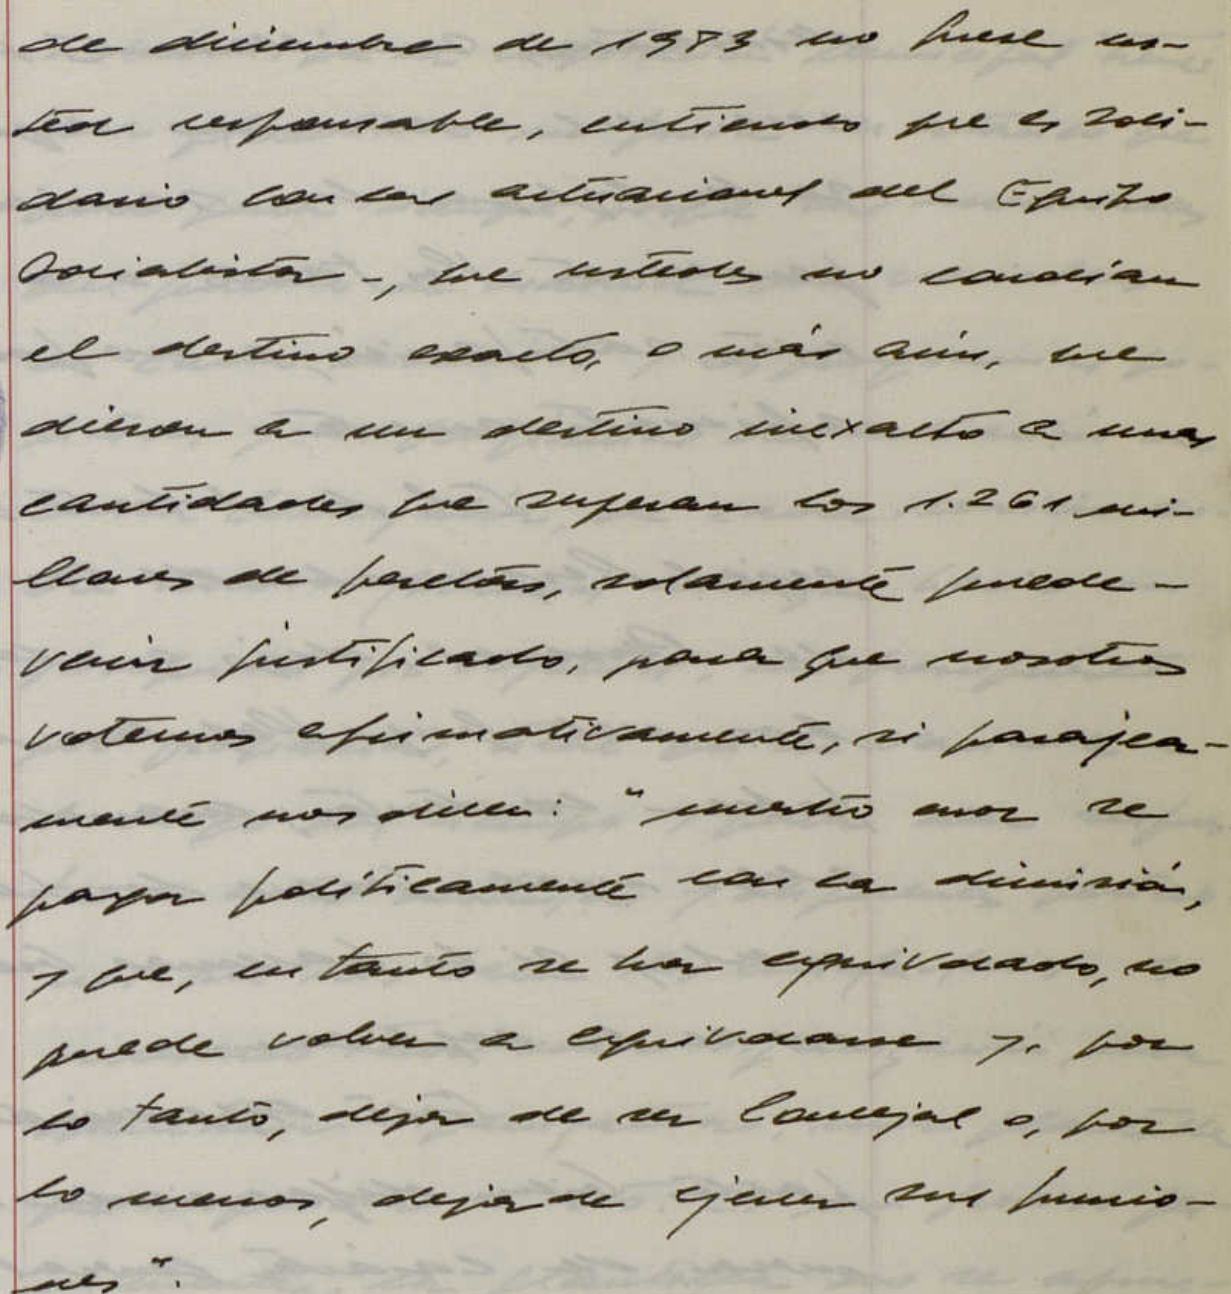 de diciembre de 1983 no fuese us-
ted responsable, entiendo que es soli-
dario con las actuaciones del Equipo
Socialista -, que ustedes no
el destino exacto, o más aún, que
dieron a un destino inexacto a unas
cantidades que superan los 1.261 mi-
llones de pesetas, solamente puede -
venir justificado, para que nosotros
votemos afirmativamente, si parejea-
mente nos dicen: "nuestro error se
paga políticamente con la dimisión,
y que, en tanto se ha equivocado, no
puede volver a equivocarse y, por
lo tanto, dejar de ser Concejal o, por
lo menos, dejar de ejercer sus funcio-
nes".